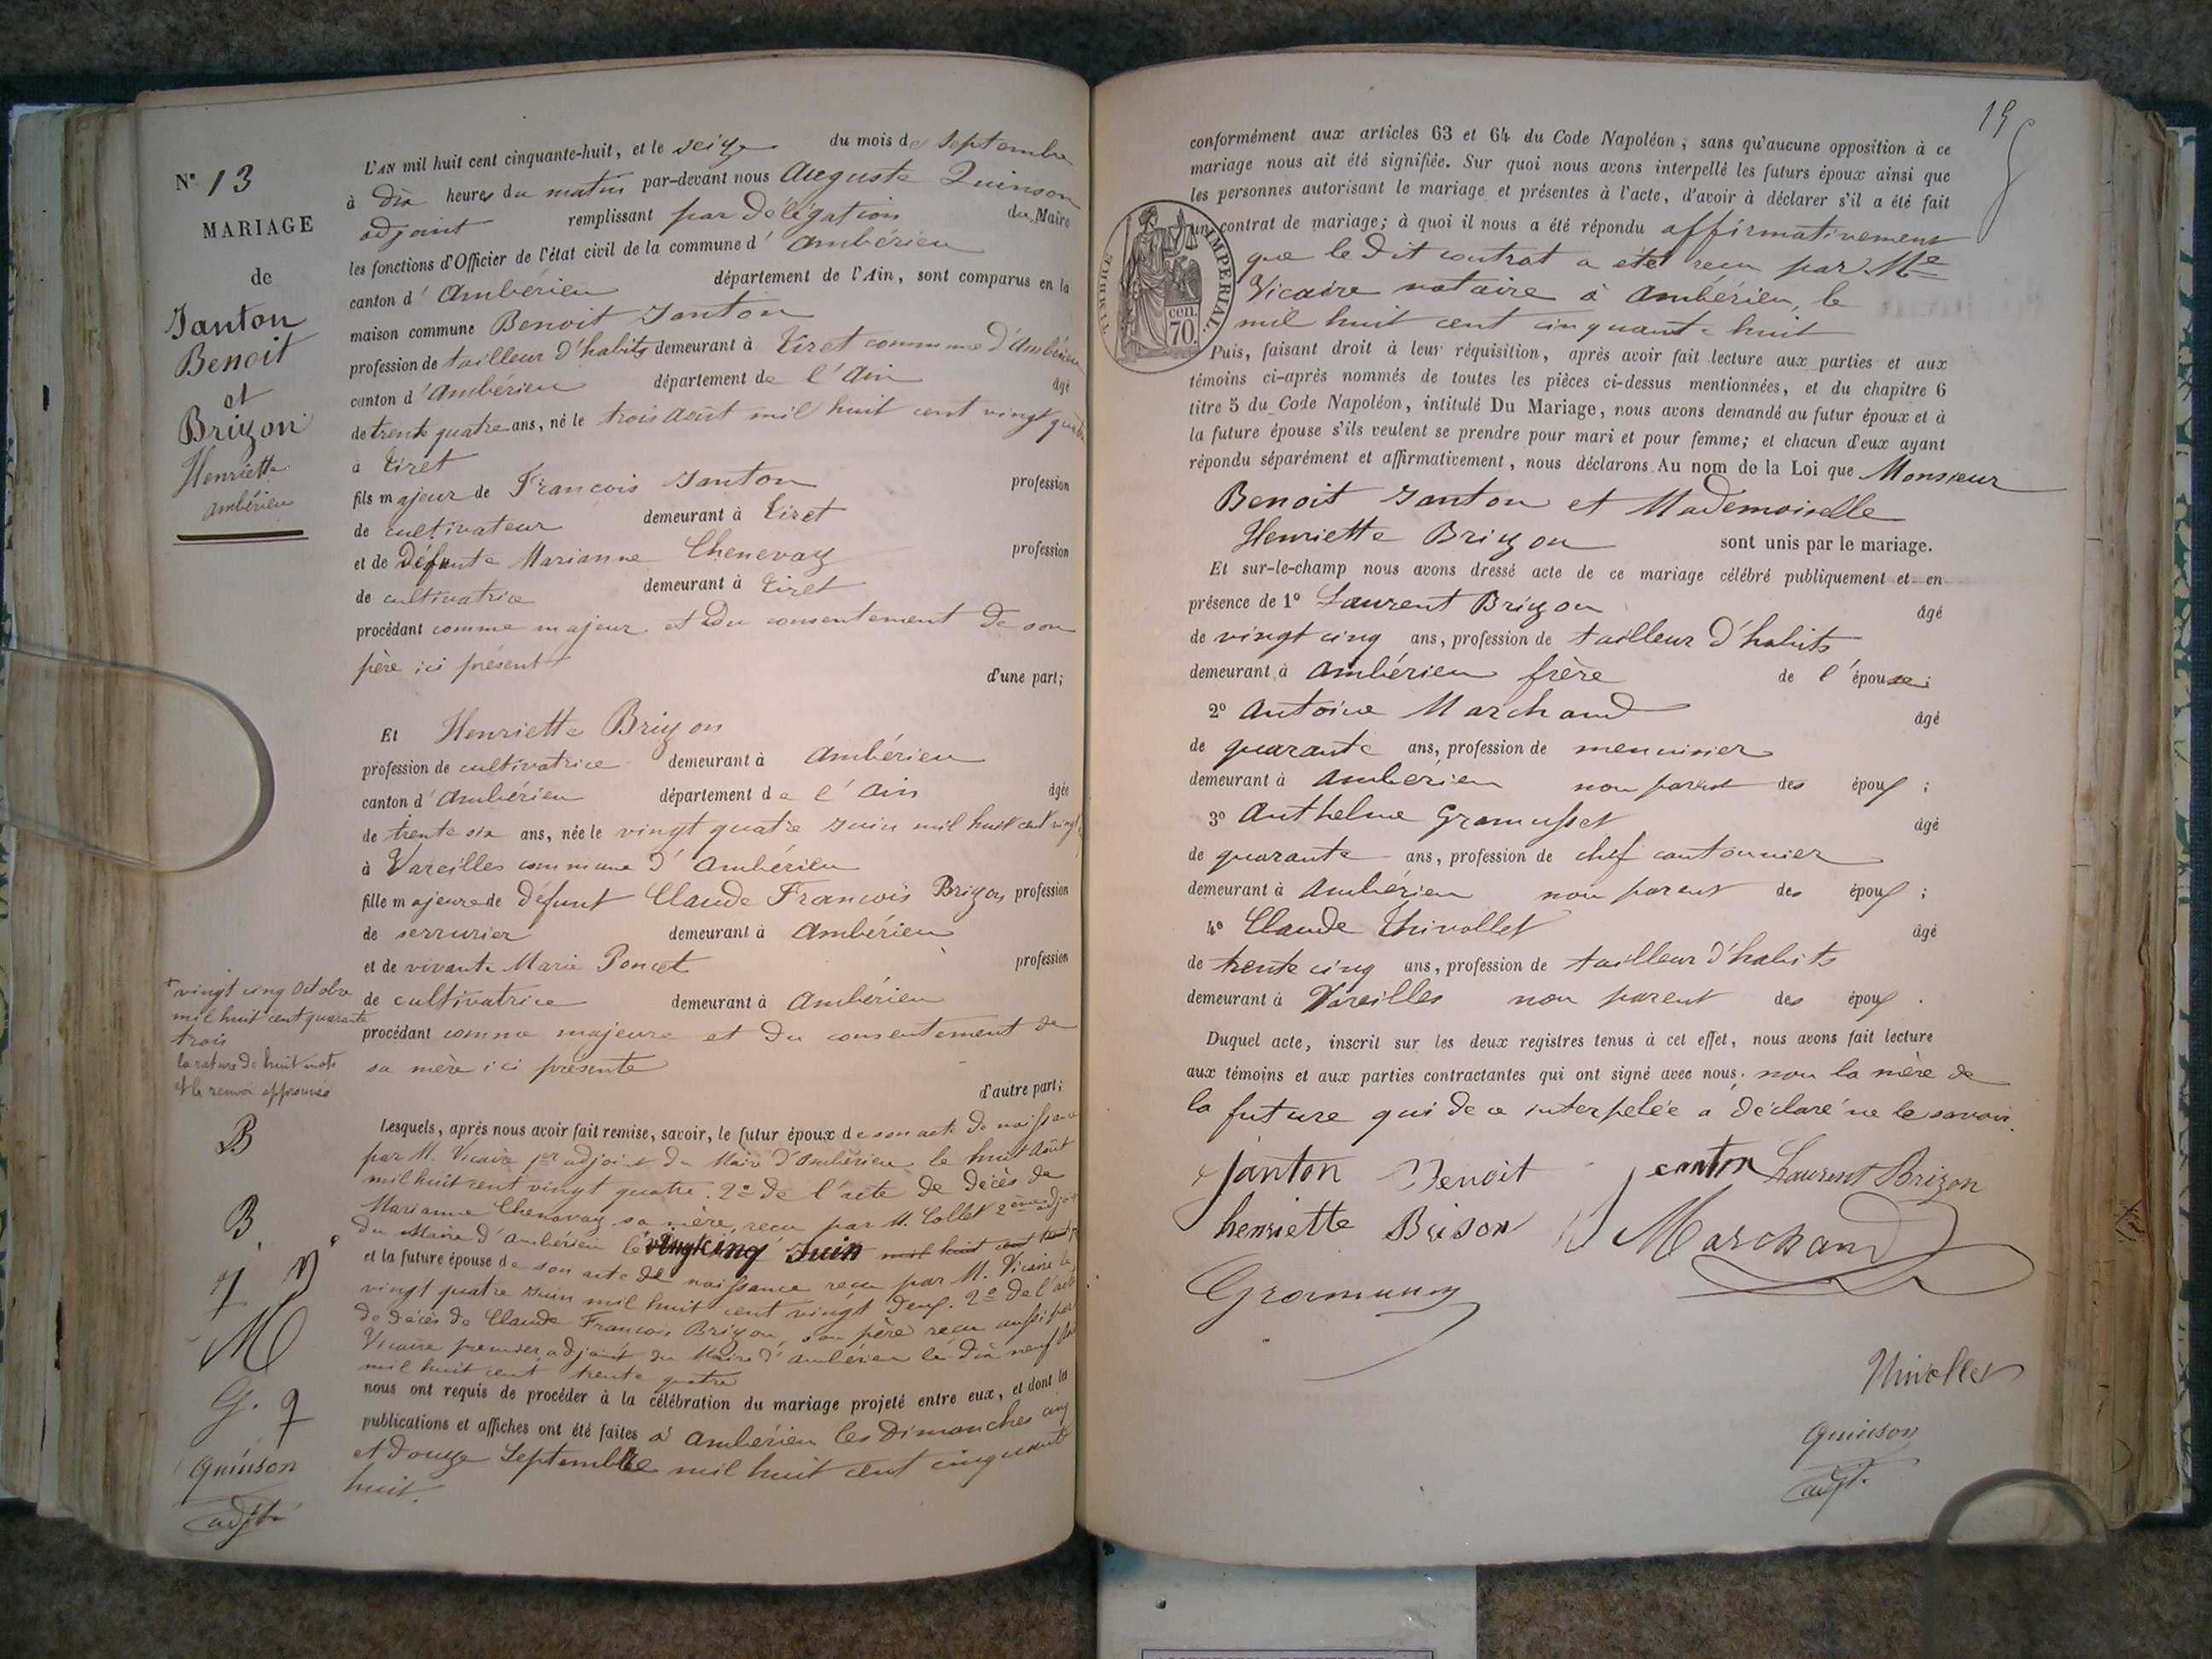 N° 13
MARIAGE
de
Janton
Benoit
et
Brizon
Henriette
Ambérieu
L'AN mil huit cent cinquante-huit, et le seize du mois de Septembre
à dix heures du matin par-devant nous Auguste Quinson
adjoint remplissant par délégation du Maire
les fonctions d'Officier de l'état civil de la commune d' Ambérieu
canton d' Ambérieu département de l'Ain, sont comparus en la
maison commune Benoit Janton
profession de tailleur d'habits demeurant à Tiret commune d'Ambérieu
canton d'Ambérieu département de l'Ain âgé
de trente quatre ans, né le trois Août mil huit cent vingt quatre
à Tiret
fils majeur de François Janton profession
de cultivateur demeurant à Tiret
et de Défunte Marianne Chenevay profession
de cultivatrice demeurant à Tiret
procédant comme majeur et du consentement de son
père ici présent
d'une part;
Et Henriette Brizon
profession de cultivatrice demeurant à Ambérieu
canton d' Ambérieu département de l'Ain âgée
de trente six ans, née le vingt quatre Juin mil huit cent vingt
à Vareilles commune d'Ambérieu
fille majeure de défunt Claude François Brizon profession
de serrurier demeurant à Ambérieu
et de vivante Marie Poncet profession
de cultivatrice demeurant à Ambérieu
procédant comme majeure et du consentement de
sa mère ici présente
d'autre part;
Lesquels, après nous avoir fait remise, savoir, le futur époux de son acte de naissance
par M. Vicaire 1er adjoint du Maire d'Ambérieu le huit Août
mil huit cent vingt quatre. 2° de l'acte de décès de
Marianne Chenevay sa mère, reçu par M. Collet 2ème adjoint
du Maire d'Ambérieu le vingt cinq Juin mil huit cent
et la future épouse de son acte de naissance reçu par M. Vicaire le
vingt quatre Juin mil huit cent vingt deux. 2° de l'acte
de décès de Claude François Brizon, son père reçu aussi par
Vicaire premier adjoint du Maire d'Ambérieu le dix neuf
mil huit cent trente quatre
nous ont requis de procéder à la célébration du mariage projeté entre eux, et dont les
publications et affiches ont été faites à Ambérieu les Dimanches cinq
et douze Septembre mil huit cent cinquante
huit.
+ vingt cinq Octobre
mil huit cent quarante
trois
la rature de huit mots
et le renvoi approuvés
B
B.
M
G. q
Quinson
adjt
19
conformément aux articles 63 et 64 du Code Napoléon, sans qu'aucune opposition à ce
mariage nous ait été signifiée. Sur quoi nous avons interpellé les futurs époux ainsi que
les personnes autorisant le mariage et présentes à l'acte, d'avoir à déclarer s'il a été fait
un contrat de mariage; à quoi il nous a été répondu affirmativement
que le dit contrat a été reçu par Me
Vicaire notaire à Ambérieu, le
mil huit cent cinquante huit
TIMBRE IMPERIAL.
cen.
70.
Puis, faisant droit à leur réquisition, après avoir fait lecture aux parties et aux
témoins ci-après nommés de toutes les pièces ci-dessus mentionnées, et du chapitre 6
titre 5 du Code Napoléon, intitulé Du Mariage, nous avons demandé au futur époux et à
la future épouse s'ils veulent se prendre pour mari et pour femme; et chacun d'eux ayant
répondu séparément et affirmativement, nous déclarons Au nom de la Loi que Monsieur
Benoit Janton et Mademoiselle
Henriette Brizon sont unis par le mariage.
Et sur-le-champ nous avons dressé acte de ce mariage célébré publiquement et en
présence de 1° Laurent Brizon âgé
de vingt cinq ans, profession de tailleur d'habits
demeurant à Ambérieu frère de l'épouse;
2° Antoine Marchand âgé
de quarante ans, profession de menuisier
demeurant à Ambérieu non parent des époux;
3° Anthelme Gramusset âgé
de quarante ans, profession de chef cantonnier
demeurant à Ambérieu non parent des époux;
4° Claude Thivollet âgé
de trente cinq ans, profession de tailleur d'habits
demeurant à Vareilles non parent des époux.
Duquel acte, inscrit sur les deux registres tenus à cet effet, nous avons fait lecture
aux témoins et aux parties contractantes qui ont signé avec nous, non la mère de
la future qui de ce interpelée a déclaré ne le savoir.
Janton Benoit Janton Laurent Brizon
henriette Brison Marchand
Thivollet
Quinson
adjt.